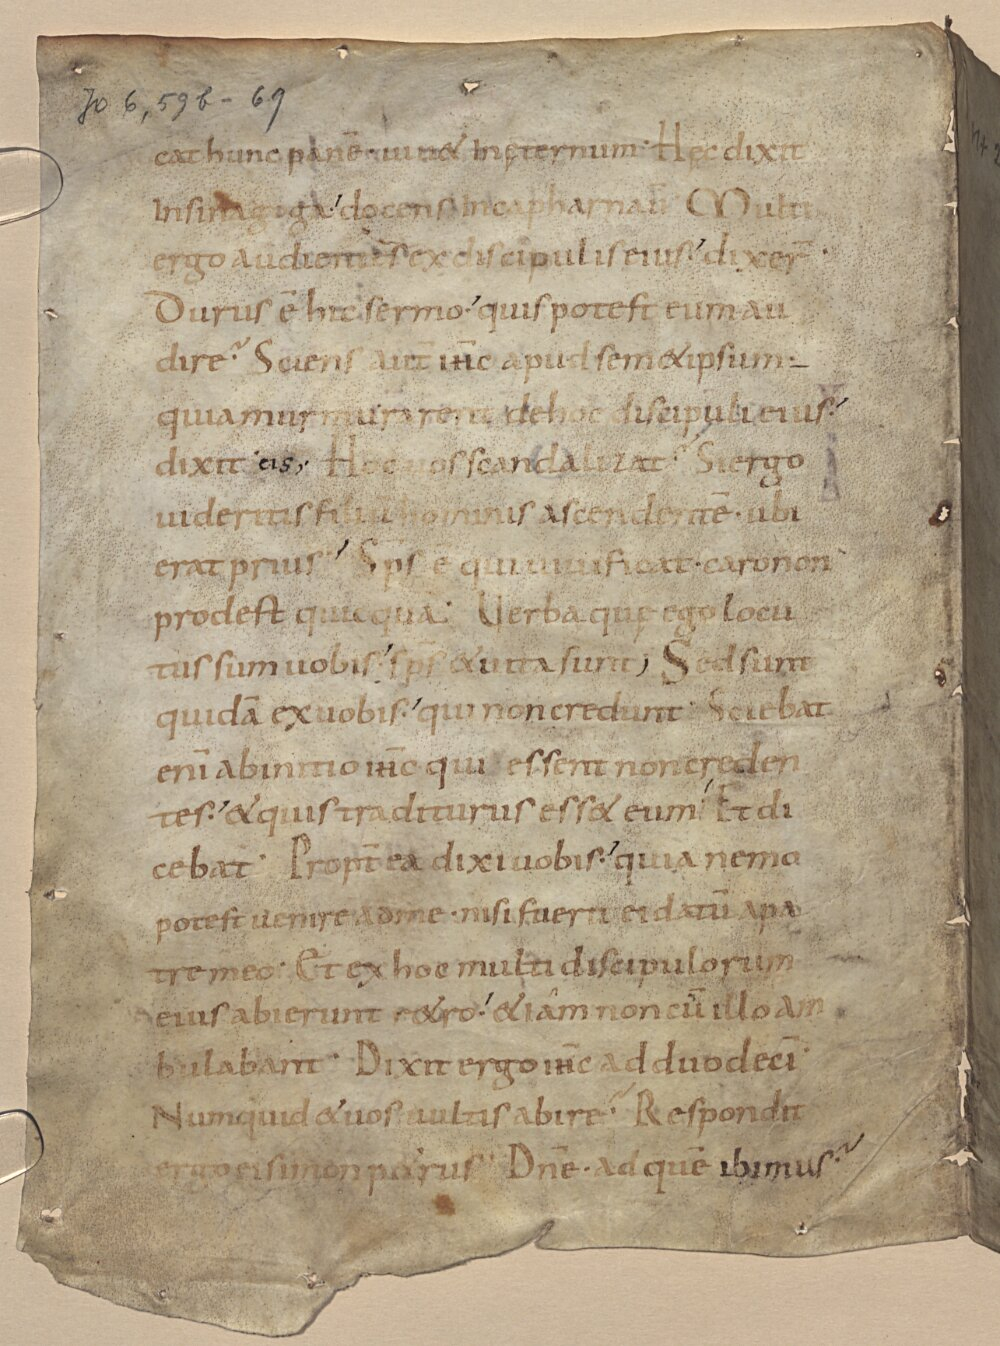 Jo 6, 59b - 69
cat hunc panē · uiu& In ęternum · Hęc dixit
In sinagiga docens In capharnaū Multi
ergo audientes ex discipulis eius dixer̄
Durus ē hic sermo quis potest eum au
dire Sciens aut̄ ih̄c apud sem&ipsum
quia murmurarent de hoc discipuli eius
dixit eis, Hoc uos scandalizat Si ergo
uideritis filiū hominis ascendentē · ubi
erat prius Sp̄s ē qui uiuificat · caro non
prodest quicquā Uerba quę ego locu
tus sum uobis sp̄s & uita sunt, Sed sunt
quidā ex uobis qui non credunt Sciebat
eni̅ ab initio ih̄c qui essent non creden
tes & quis traditurus ess& eum Et di
cebat Propt̄ea dixi uobis quia nemo
potest uenire ad me · nisi fuerit ei datū a pa
tre meo · Et ex hoc multi discipulorum
eius abierunt r&ro & iam non cū illo am
bulabant Dixit ergo ih̄c ad duodecī
Numquid & uos uultis abire Respondit
ergo ei simon p&rus Dn̄e · ad quē ibimus